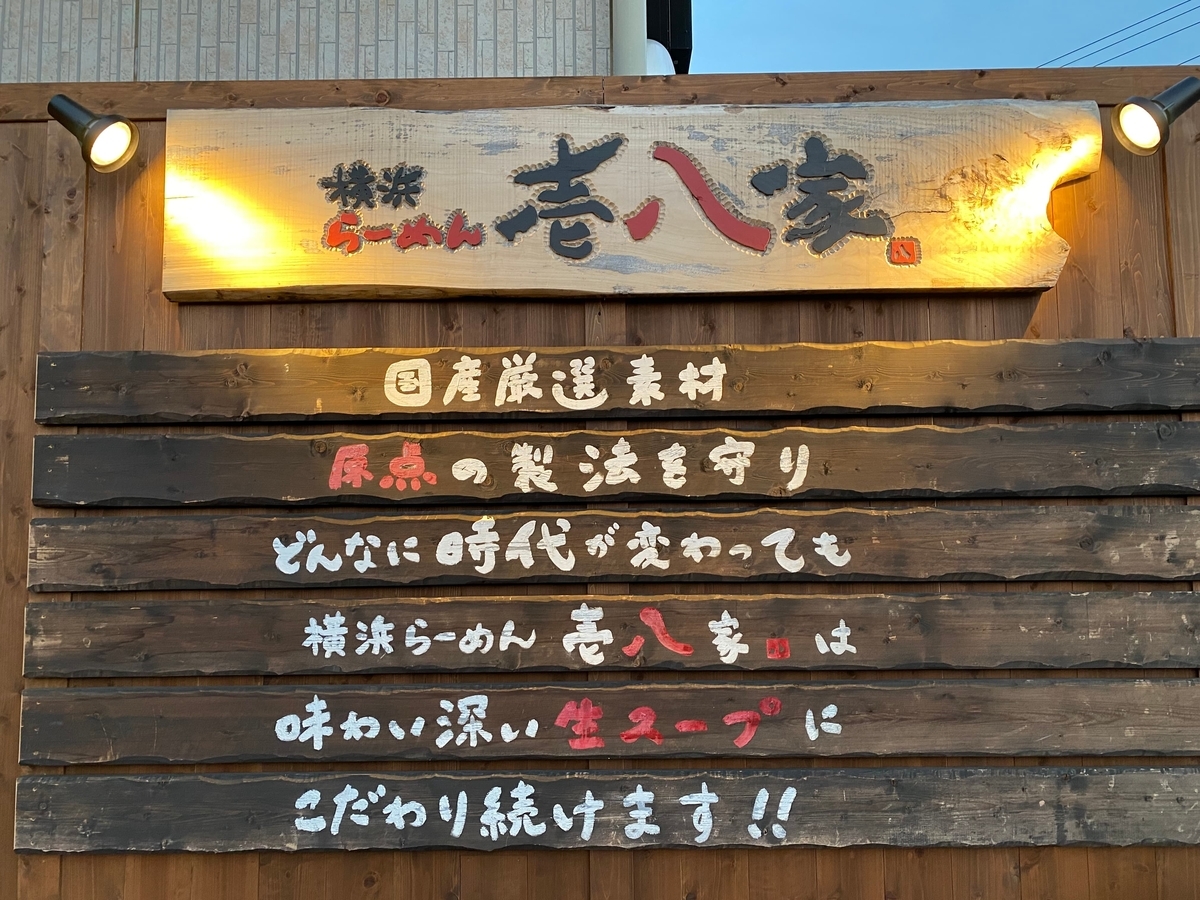 横浜
らーめん
壱八家
八
国産厳選素材
原点の製法を守り
どんなに時代が変わっても
横浜らーめん 壱八家 は
味わい深い生スープに
こだわり続けます!!